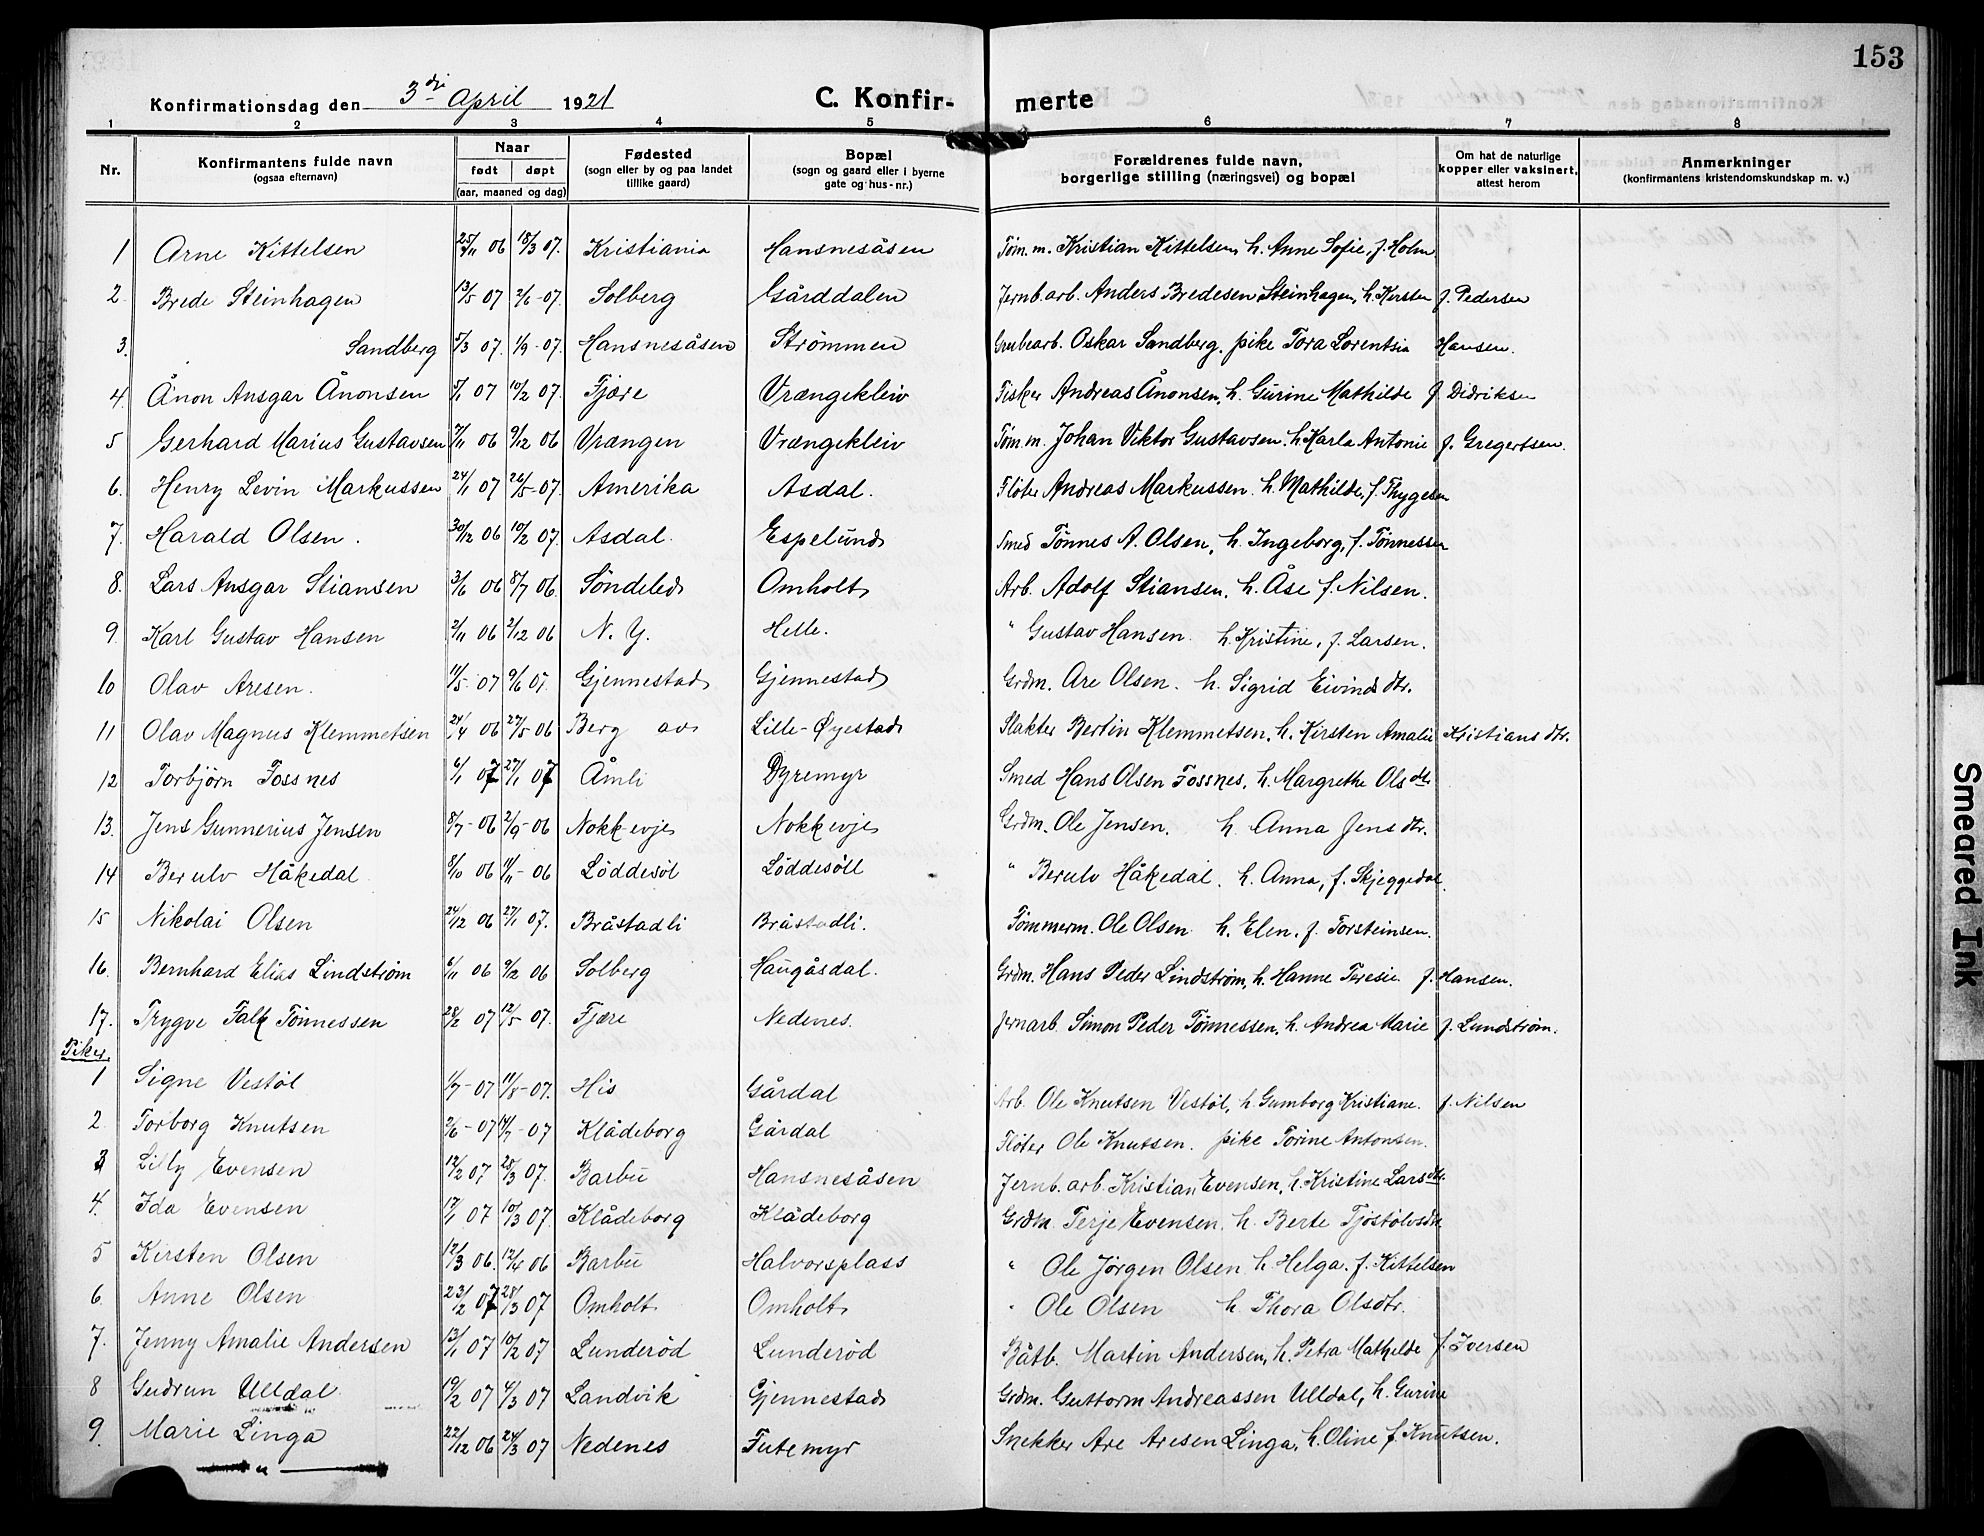 153
Konfirmationsdag den 3die April 1921 C. Konfir- merte
1 2 3 4 5 6 7 8
Nr. Konfirmantens fulde navn (ogsaa efternavn) Naar født døpt (aar, maaned og dag) Fødested (sogn eller by og paa landet tillike gaard) Bopæl (sogn og gaard eller i byerne gate og hus-nr.) Forældrenes fulde navn, borgerlige stilling (næringsvei) og bopæl Om hat de naturlige kopper eller vaksinert, attest herom Anmerkninger (konfirmantens kristendomskundskap m. v.)
1 Arne Kittelsen 25/11 06 18/3 07. Kristiania Hansnesåsen Tøm.m. Kristian Kittelsen, h. Anne Sofie, f. Holm
2 Brede Steinhagen 13/5 07 2/6-07. Solberg Gårddalen Jernb.arb. Anders Bredesen Steinhagen, h. Kirsten f. Pedersen
3. Sandberg 5/3 07. 1/9-07. Hansnesåsen Strømmen Grubearb. Oskar Sandberg, pike Tora Lorentsia Hansen.
4. Ånon Ansgar Ånonsen 5/1 07 10/2 07. Fjære Vrængekleiv Fisker Andreas Ånonsen, h. Gurine Mathilde f. Didriksen
5 Gerhard Marius Gustavsen 7/11 06 9/12 06 Vrængen Vrængekleiv Tøm.m. Johan Viktor Gustavsen. h. Karla Antonie f. Gregertsen.
6. Henry Levin Markussen 24/1 07 26/5-07. Amerika Asdal. Fløter Andreas Markussen. h. Mathilde, f. Thygesen
7. Harald Olsen. 30/12 06 10/2 07. Asdal. Espelund Smed Tønnes A. Olsen, h. Ingeborg, f. Tønnessen
8. Lars Ansgar Stiansen 3/6 06 8/7 06. Søndeled Omholt Arb. Adolf Stiansen. h. Åse f. Nilsen.
9. Karl Gustav Hansen 2/11 06 2/12 06 N. Y. Helle. " Gustav Hansen. h. Kristine, f. Larsen.
10 Olav Aresen. 11/5 07 9/6 07. Gjennestad Gjennestad Grdm. Are Olsen. h. Sigrid Eivindsdtr.
11 Olav Magnus Klemmetsen 24/4 06 27/5 06 Berg av Lille-Øyestad Slakter Bertin Klemmetsen, h. Kirsten Amalie Kristiansdtr.
12 Torbjørn Fossnes 6/1 07 27/1 07 Åmli Dyremyr Smed Hans Olsen Fossnes, h. Margrethe Olsdtr
13. Jens Gunnerius Jensen 8/7-06 2/9-06 Nokkevje Nokkevje Grdm. Ole Jensen. h. Anna Jensdtr.
14 Berulv Håkedal 8/10 06 4/11-06 Løddesøl Løddesöll " Berulv Håkedal. h. Anna, f. Skjeggedal.
15 Nikolai Olsen 24/12 06 27/1 07. Bråstadli Bråstadli. Tømmerm. Ole Olsen h. Elen. f. Torsteinsen.
16. Bernhard Elias Lindstrøm 6/11 06 9/12 06 Solberg Haugåsdal. Grdm. Hans Peder Lindstrøm, h. Hanne Teresie f. Hansen.
17. Trygve Falk Tønnessen 28/2 07 12/5 07. Fjære Nedenes. Jernarb. Simon Peder Tønnessen, h. Andrea Marie f. Lundstrøm.
Piker.
1 Signe Vestøl 1/7-07 11/8-07. His Gårdal Arb. Ole Knutsen Vestøl, h. Gumborg Kristiane. f. Nilsen
2. Torborg Knutsen 2/6-07 14/7-07 Klådeborg Gårdal Fløter Ole Knutsen. pike Torine Antonsen.
3 Lilly Evensen 12/2 07 28/3 07. Barbu Hansnesåsen Jernb.arb. Kristian Evensen, h. Kristine Larsdtr.
4. Ida Evensen 17/1 07 10/3 07. Klådeborg Klådeborg Grdm. Terje Evensen. h. Berte Tjøstolvsdtr
5 Kirsten Olsen 12/3 06. 12/4 06 Barbu Halvorsplass " Ole Jørgen Olsen h. Helga. f. Kittelsen
6. Anne Olsen 23/2 07 28/3 07 Omholt Omholt " Ole Olsen h. Thora Olsdtr.
7. Jenny Amalie Andersen 13/1 07 10/2 07. Lunderød Lunderød Båtb. Martin Andersen, h. Petra Mathilde f. Iversen
8 Gudrun Ulldal 19/2 07 4/3 07 Landvik Gjennestad Grdm. Guttorm Andreassen Ulldal, h. Gurine
9. Marie Linga 22/12 06 24/3 07 Nedenes Futemyr Snekker Are Aresen Linga, h. Oline f. Knutsen.
Smeared Ink